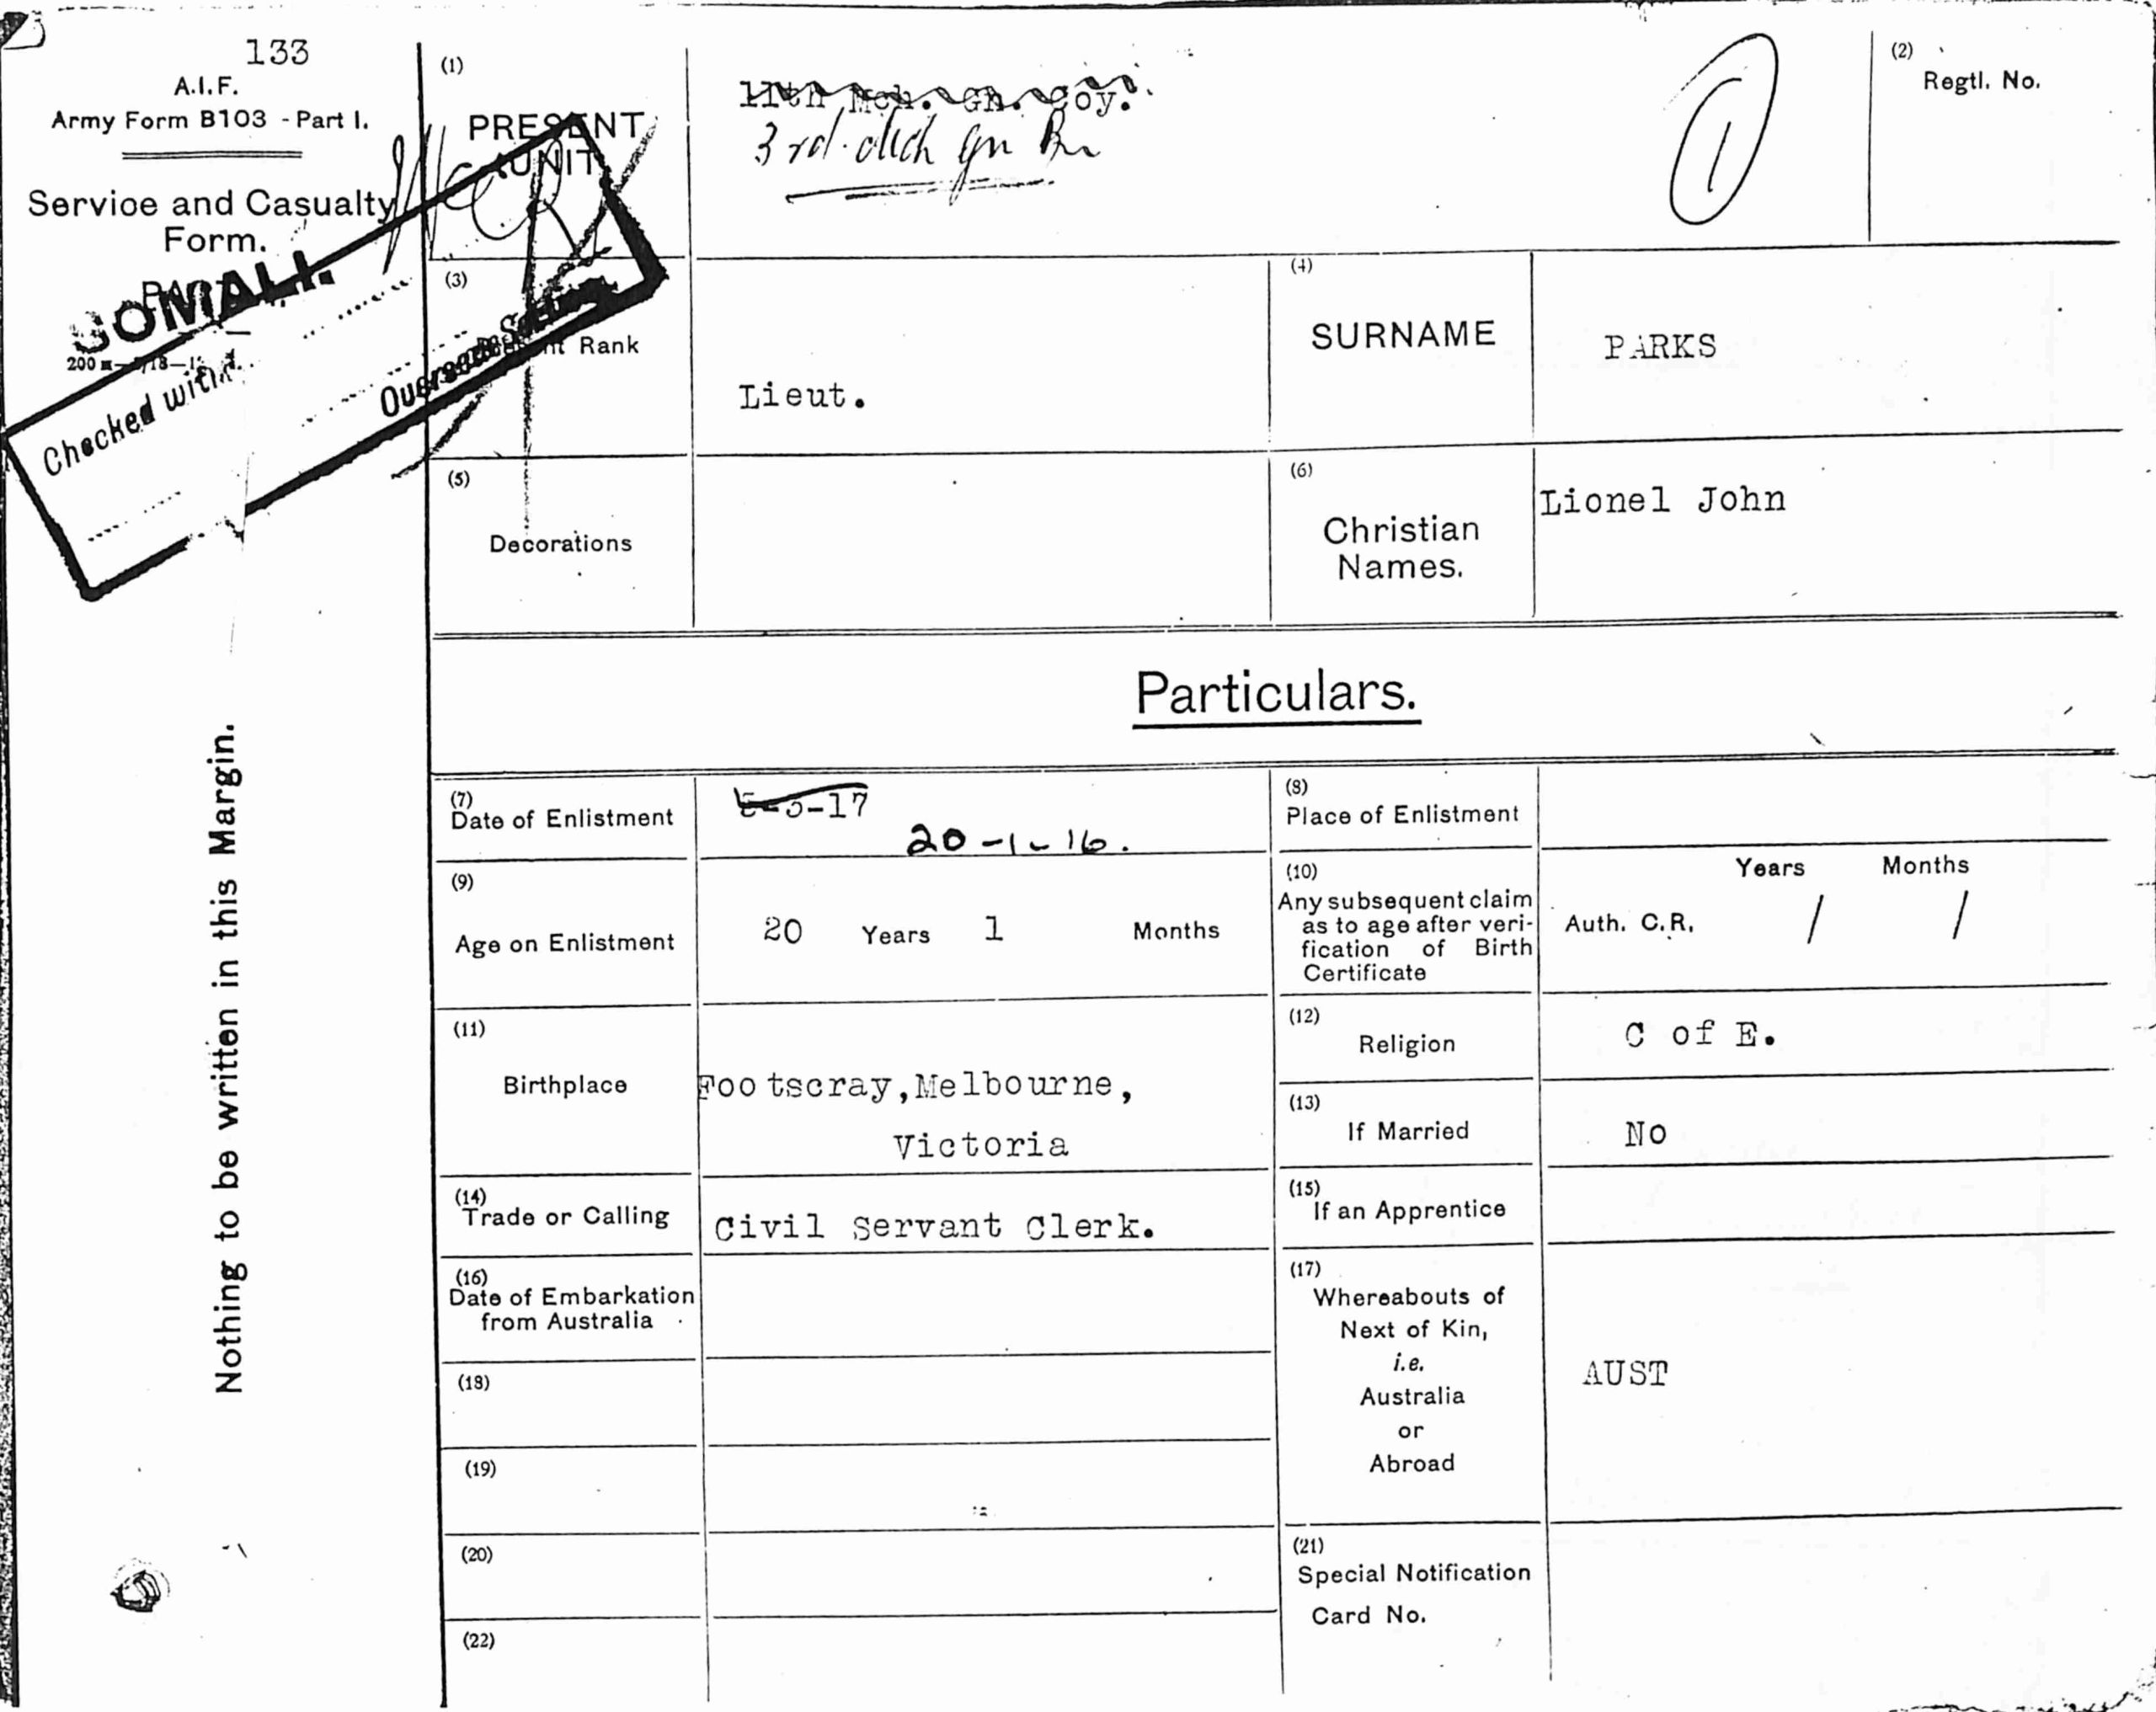 133
A.I.F.
Army Form B103 - Part I.
Service and Casualty
Form.
SOMALI.
Checked with
Overseas
(1)
PRESENT
UNIT
11th Mch. Gn. Coy.
3rd. Mch Gn Bn
1
(2)
Regtl. No.
(3)
Rank
Lieut.
(4)
SURNAME
PARKS
(5)
Decorations
(6)
Christian
Names.
Lionel John
Particulars.
(7)
Date of Enlistment
-17
20-1-16.
(8)
Place of Enlistment
(9)
Age on Enlistment
20 Years 1 Months
(10)
Any subsequent claim
as to age after veri-
fication of Birth
Certificate
Years Months
Auth. C.R. / /
(11)
Birthplace
Footscray, Melbourne,
Victoria
(12)
Religion
C of E.
(13)
If Married
No
(14)
Trade or Calling
Civil Servant Clerk.
(15)
If an Apprentice
(16)
Date of Embarkation
from Australia
(17)
Whereabouts of
Next of Kin,
i.e.
Australia
or
Abroad
AUST
(18)
(19)
(20)
(21)
Special Notification
Card No.
(22)
Nothing to be written in this Margin.